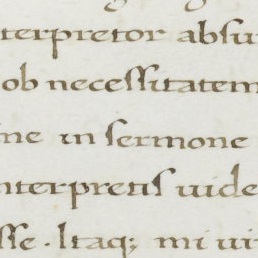 nterpretor absu
ob necessitatem
ine in sermone
nterpretis uide
sse. Itaq; mi ui